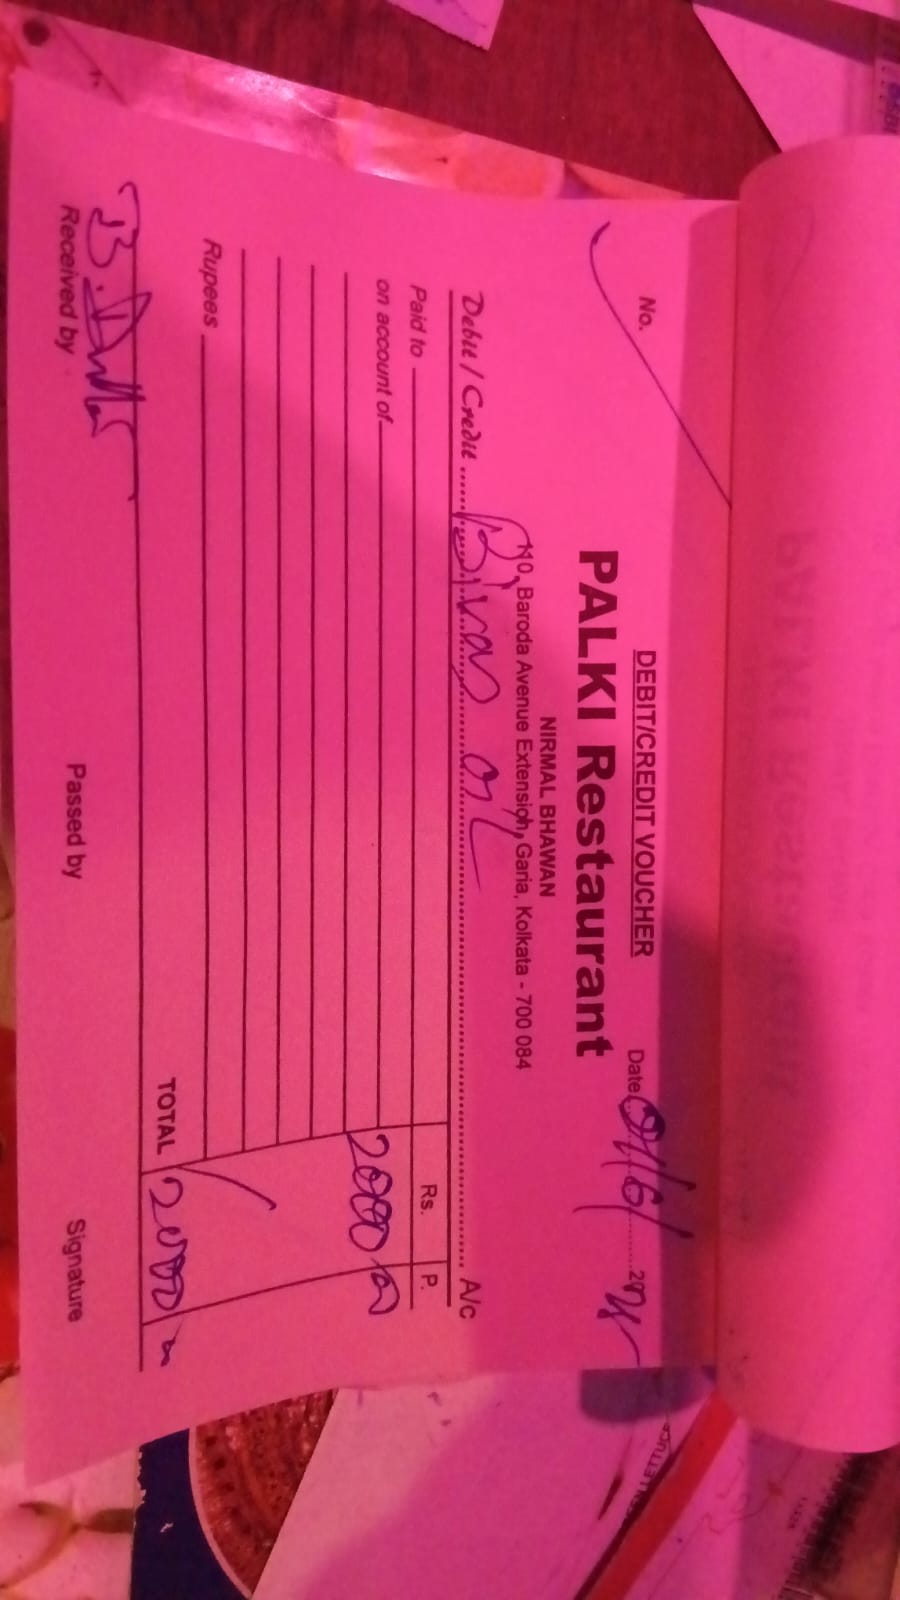 DEBIT/CREDIT VOUCHER
No.
Date 01/6/ 2025
PALKI Restaurant
NIRMAL BHAWAN
40, Baroda Avenue Extension, Garia, Kolkata - 700 084
Debit / Credit A/c
Rs. P.
Paid to
on account of 2000 00
Rupees
TOTAL 2000
B. Dutta
Received by Passed by Signature